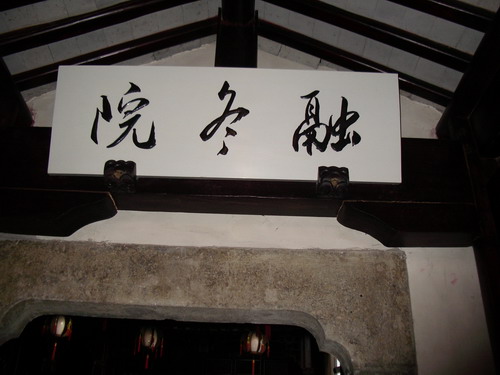 融冬院